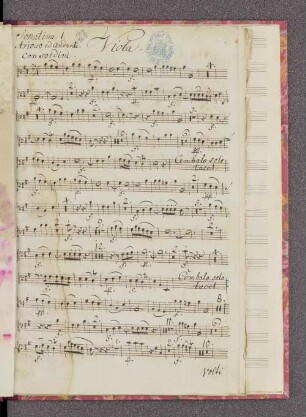 Sonatina 1
Viola.
Arioso ed Andante.
Con sordini.
Cembalo solo
tacet
Cembalo solo
tacet
Volti